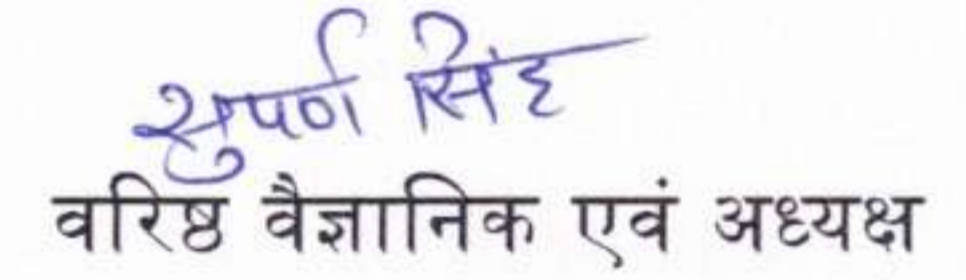 सुपर्ण सिंह
वरिष्ठ वैज्ञानिक एवं अध्यक्ष